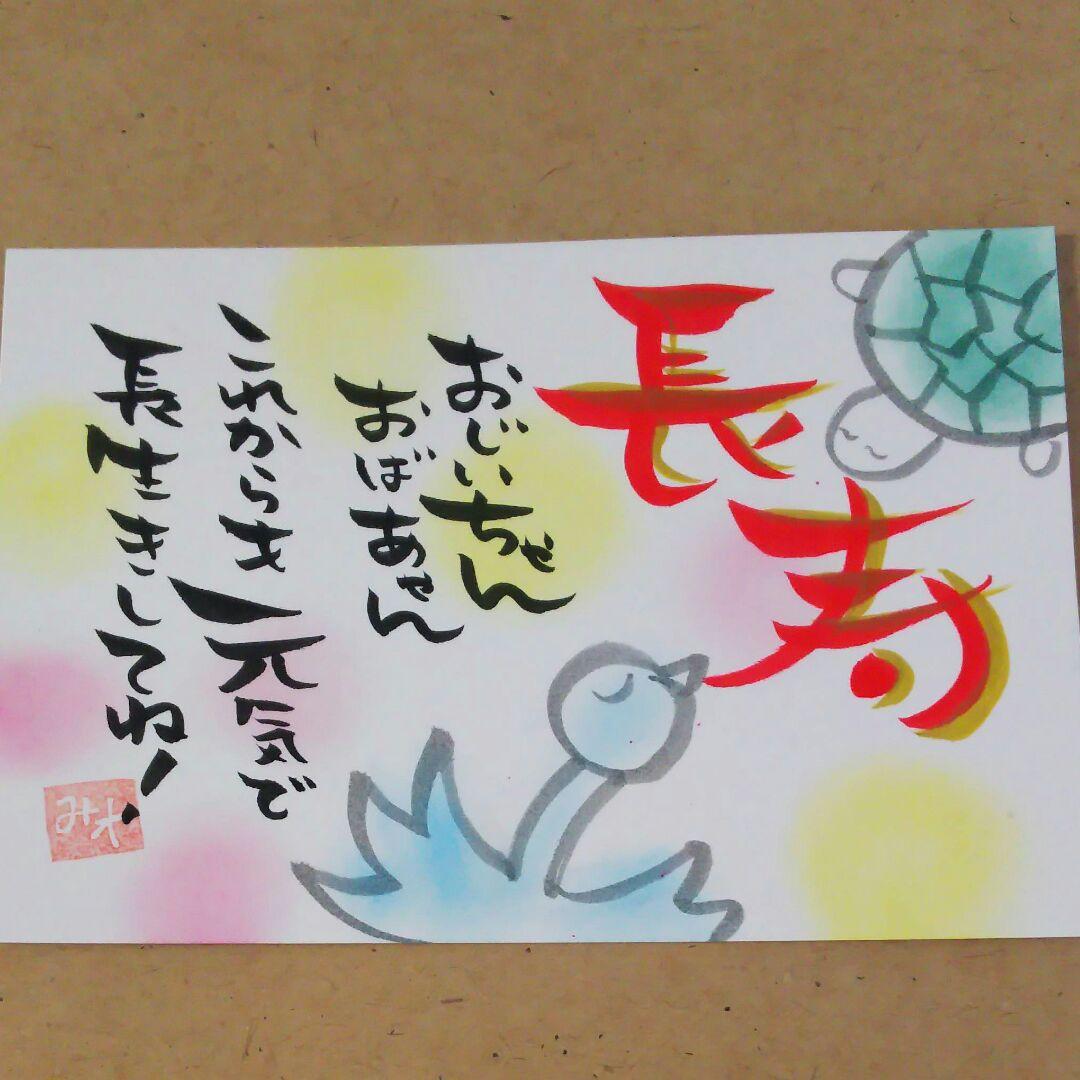 長寿
おじいちゃん
おばあちゃん
これからも元気で
長生きしてね!